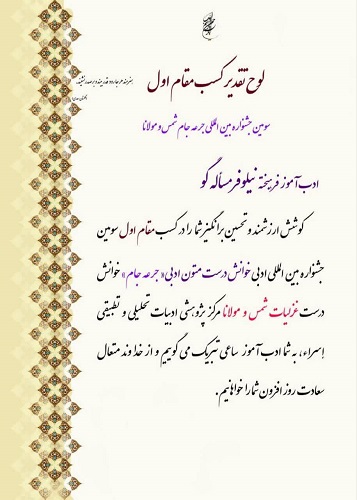 هنرمند هر جا رود قدر بیند و بر صدر نشیند.
لوح تقدیر کسب مقام اول
سومین جشنواره بین المللی جرعه جام شمس و مولانا
ادب آموز فرهیخته نیلوفر مسأله گو
کوشش ارزشمند و تحسین برانگیز شما را در کسب مقام اول سومین
جشنواره بین المللی ادبی خوانش درست متون ادبی «جرعه جام» خوانش
درست غزلیات شمس و مولانا مرکز پژوهشی ادبیات تحلیلی و تطبیقی
إسراء، به شما ادب آموز ساعی تبریک می گوییم و از خداوند متعال
سعادت روز افزون شما را خواهانیم.